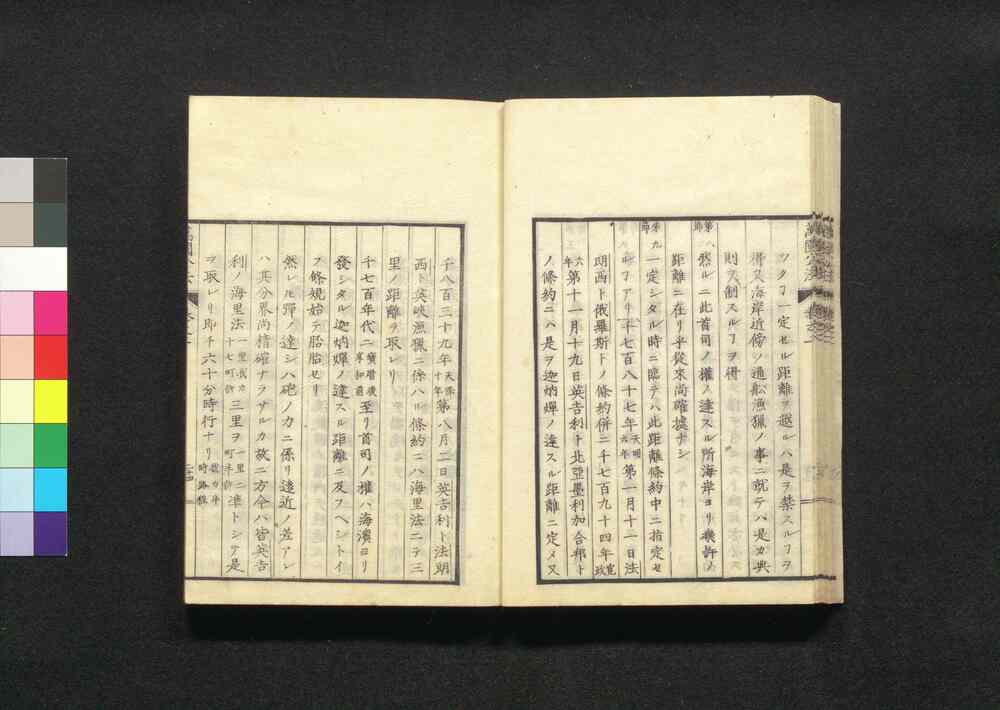 ツクコ一定セル距離ヲ越ルハ是ヲ禁スルコヲ
得又海岸近傍ノ通船漁猟ノ事ニ就テハ是カ典
則ヲ制スルコヲ得
第八節 然ルニ此首司ノ權ノ達スル所海岸ヨリ幾許ノ
距離ニ在リ乎從來尚確據ナシ
第九節 一定シタル時ニ臨テハ此距離條約中ニ指定セ
シコアリ千七百八十七年天明六年第一月十一日法
朗西ト俄羅斯トノ條約併ニ千七百九十四年寛政
六年第十一月十九日英吉利ト北亞墨利加合邦ト
ノ條約ニハ是ヲ迦炳彈ノ達スル距離ニ定メ又
千八百三十九年天保十年第八月二日英吉利ト法朗
西ト英峽漁猟ニ係ハル條約ニハ海里法ニテ三
里ノ距離ヲ取レリ
千七百年代ニ寛暦後享和前至リ首司ノ權ハ海濱ヨリ
發シタル迦炳彈ノ達スル距離ニ及フヘシトイ
フ條規始テ胎胎セリ
然レ𪜈彈ノ達シハ砲ノカニ係リ遠近ノ差アレ
ハ其分界尚精確ナラサルカ故ニ方今ハ皆英吉
利ノ海里法一里我カ十七町許三里ヲ一里ニ町半許準トシテ是
ヲ取レリ即チ六十分時行ナリ我カ半時路程
萬國公法